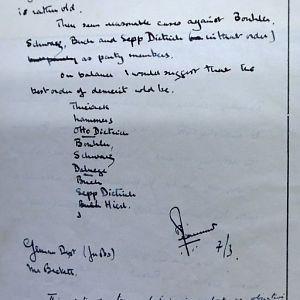 is rather old.
There seem reasonable cases against Bouhler,
Schwarz, Buch and Sepp Dietrich (in that order)
as party members.
On balance I would suggest that the
best order of demerit would be.
Thierack
Lammers
Otto Dietrich
Bouhler,
Schwarz
Daluege
Buch
Sepp Dietrich
Hierl.
7/3.
German Dept
Mr Beckett.